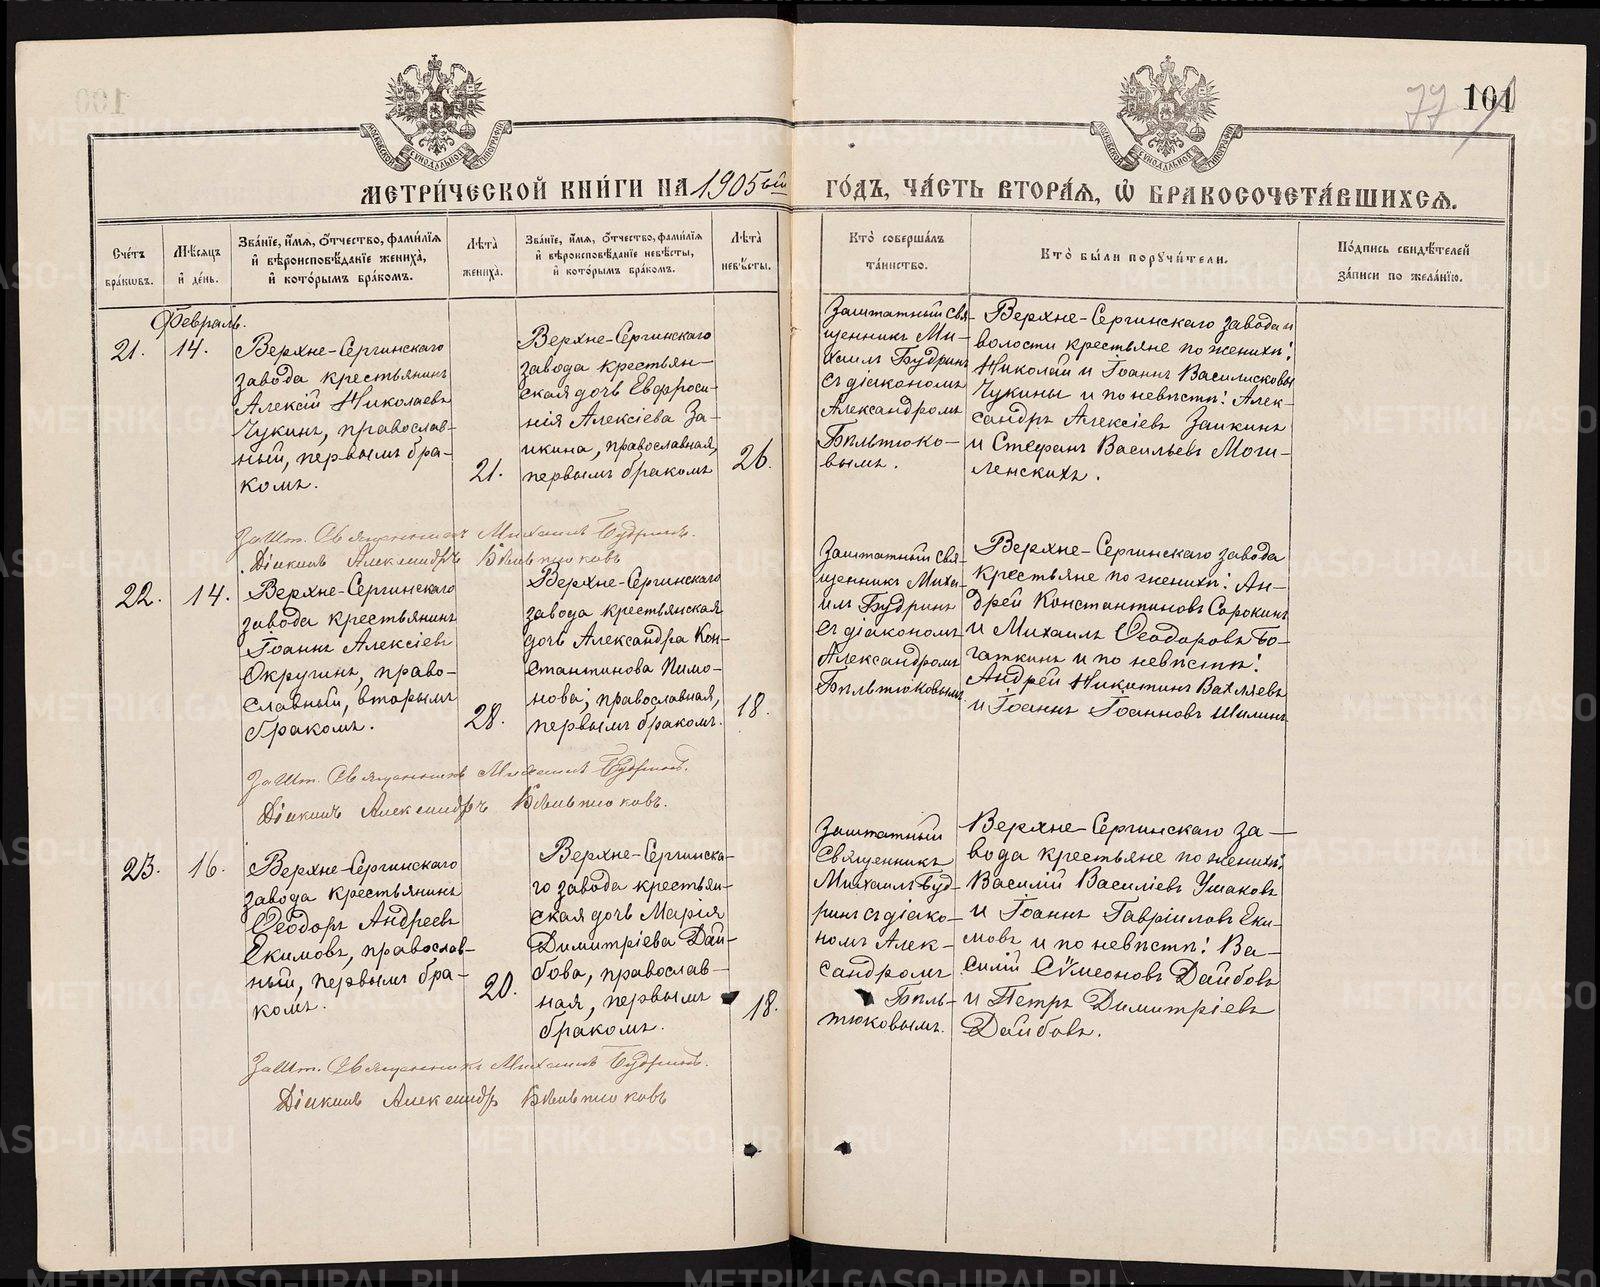 101
77
МЕТРИ́ЧЕСКОЙ КНИ́ГИ НА 1905ый ГО́ДЪ, ЧА́СТЬ ВТОРА́Я, Ѽ БРАКОСОЧЕТА́ВШИХСѦ.
Сче́тъ бра́кѡвъ.
Мѣ́сѧцъ и҆ де́нь.
Зва́нїе, и҆́мѧ, ѻ҆́тчество, фами́лїѧ
и҆ вѣроисповѣ́данїе жениха̀,
и҆ кото́рымъ бра́комъ.
Лѣ́та̀ жениха̀.
Зва́нїе, и҆́мѧ, ѻ҆́тчество, фами́лїѧ
и҆ вѣроисповѣ́данїе невѣ́сты,
и҆ кото́рымъ бра́комъ.
Лѣ́та̀ невѣ́сты.
Кто̀ соверша́лъ
та́инство.
Кто̀ бы́ли порꙋчи́тели.
По́дпись свидѣ́телей
за́писи по жела́нїю.
Февраль.
21.
14.
Верхне-Сергинскаго
завода крестьянинъ
Алексій Николаевъ
Чукинъ, православ-
ный, первымъ бра-
комъ.
21.
Верхне-Сергинскаго
завода крестьян-
ская дочь Евфроси-
нія Алексіева За-
икина, православная,
первымъ бракомъ
26.
Заштатный свя-
щенникъ Ми-
хаилъ Будринъ
съ діакономъ
Александромъ
Бѣльтюко-
вымъ.
Верхне-Сергинскаго завода и
волости крестьяне по женихѣ:
Николай и Іоаннъ Василисковы
Чукины и по невѣстѣ: Алек-
сандръ Алексіевъ Заикинъ
и Стефанъ Васильевъ Моги-
ленскихъ.
Зашт. Священникъ Михаилъ Будринъ.
Діаконъ Александръ Бѣльтюковъ
22.
14.
Верхне-Сергинскаго
завода крестьянинъ
Іоаннъ Алексіевъ
Округинъ, право-
славный, вторымъ
бракомъ.
28.
Верхне-Сергинскаго
завода крестьянская
дочь Александра Кон-
стантинова Пимо-
нова, православная,
первымъ бракомъ.
18.
Заштатный свя-
щенникъ Миха-
илъ Будринъ
съ діакономъ
Александромъ
Бѣльтюковымъ.
Верхне-Сергинскаго завода
крестьяне по женихѣ: Ан-
дрей Константиновъ Сорокинъ
и Михаилъ Ѳеодоровъ Бо-
гаткинъ и по невѣстѣ:
Андрей Никитинъ Вахляевъ
и Іоаннъ Іоанновъ Шилинъ
Зашт. Священникъ Михаилъ Будринъ.
Діаконъ Александръ Бѣльтюковъ.
23.
16.
Верхне-Сергинскаго
завода крестьянинъ
Ѳеодоръ Андреевъ
Екимовъ, православ-
ный, первымъ бра-
комъ.
20.
Верхне-Сергинска-
го завода крестьян-
ская дочь Марія
Димитріева Дай-
бова, православ-
ная, первымъ
бракомъ.
18.
Заштатный
священникъ
Михаилъ Буд-
ринъ съ діако-
номъ Алек-
сандромъ
Бѣль-
тюковымъ.
Верхне-Сергинскаго за-
вода крестьяне по женихѣ:
Василій Василіевъ Ушаковъ
и Іоаннъ Гавріиловъ Еки-
мовъ и по невѣстѣ: Ва-
силій Сѵмеоновъ Дайбовъ
и Петръ Димитріевъ
Дайбовъ.
Зашт. Священникъ Михаилъ Будринъ.
Діаконъ Александръ Бѣльтюковъ